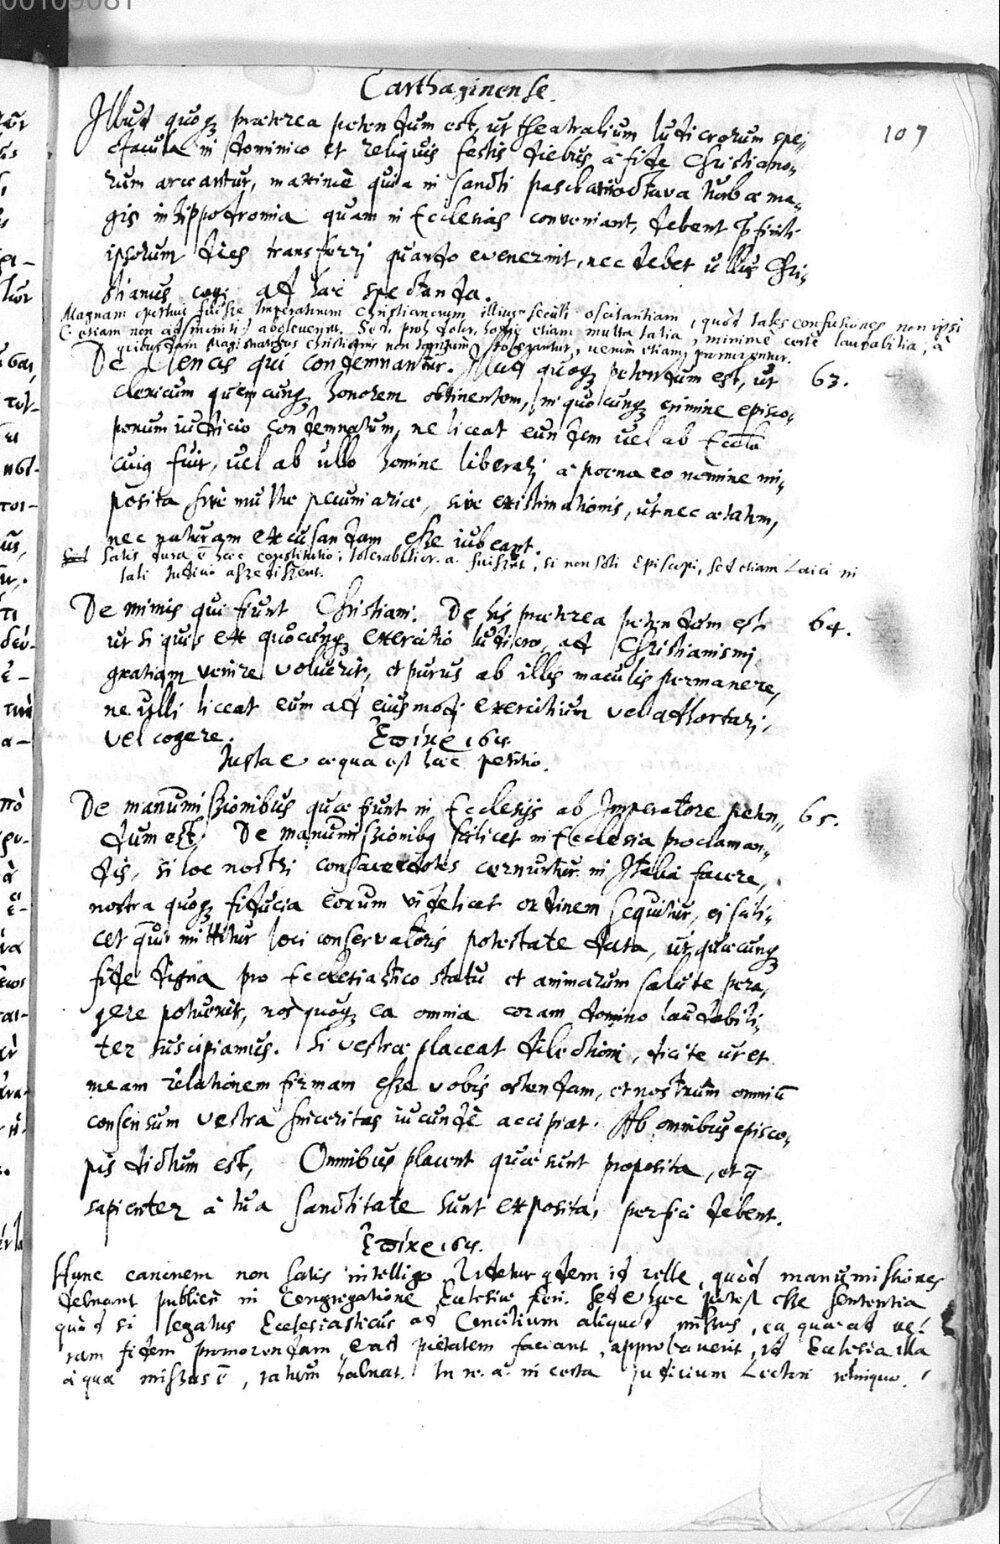 Carthaginense.
107
Illud quoq; præterea petendum est, ut theatralium ludicrorum spe-
ctacula in dominico et reliquis festis diebus à fide Christiano-
rum arceantur, maximè quia in sancti paschatis octava turbæ ma-
gis in hippodromia quam in Ecclesias conveniant, debent
ipsorum dies transferri quando evenerint, nec debet ullus Chri-
stianus cogi ad hæc spectanda.
Magnam oportuit fuisse Imperatorum Christianorum illius seculi oscitantiam, quòd tales confusiones non ipsi
etiam non admoniti aboleverint. Sed proh dolor, hodie etiam multa talia, minimè certè laudabilia, à
quibusdam Magistratibus Christianis non tantum tolerantur, verùm etiam
De Clericis qui condemnantur. Illud quoq; petendum est, ut 63.
clericum quemcunq; honorem obtinentem, in quocunq; crimine episco-
porum iudicio condemnatum, ne liceat eundem vel ab Eccl'a
cui fuit, vel ab ullo homine liberari à poena eo nomine im-
posita sive multæ pecuniariæ, sive existimationis, ut nec ætatem,
nec naturam excusandam esse iubeant.
Satis dura ē hæc constitutio: tolerabilior a. fuisset, si non soli Episcopi, sed etiam Laici in
tali iudicio assedissent.
De mimis qui fiunt Christiani. De his præterea petendum est 64.
ut si quis ex quocunq; exercitio ludicro, ad Christianismi
gratiam venire voluerit, et purus ab illis maculis permanere,
ne ulli liceat eum ad eiusmodi exercitium vel adhortari,
vel cogere.
Justa et æqua est hæc petitio.
De manumissionibus quæ fiunt in Ecclesijs ab Imperatore peten- 65.
dum est. De manumissionibq scilicet in Ecclesia proclaman-
dis, si hoc nostri consacerdotes cernuntur in Italia facere,
nostra quoq; fiducia eorum videlicet ordinem sequitur, ei scili-
cet qui mittitur loci conservatoris potestate data, ut quæcunq;
fide digna pro Ecclesiastico statu et animarum salute pera-
gere potuerit, nos quoq; ea omnia coram domino laudabili-
ter suscipiamus. Si vestræ placeat dilectioni, dicite ut et
meam relationem firmam esse vobis ostendam, et nostrûm omniū
consensum vestra sinceritas iucundè accipiat. Ab omnibus episco-
pis dictum est, Omnibus placent quæ sunt proposita, et q̄
sapienter à tua sanctitate sunt exposita, perfici debent.
Hunc canonem non satis intelligo. Videtur q̇dem id velle, quòd manumissiones
debeant publicè in Congregatione Ecclesiæ fieri. Sed et hæc potest esse sententia
quòd si legatus Ecclesiasticus ad Concilium aliquod missus, ea quæ ad ve-
ram fidem promovendam, et ad pietatem faciant, approbaverit, id Ecclesia illa
à qua missus ē, ratum habeat. In re a. incerta judicium Lectori relinquo.